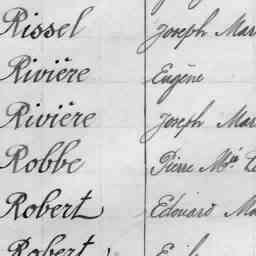 Rissel Joseph Mar
Rivière Eugène
Rivière Joseph Mar
Robbe Pierre M
Robert Edouard Ma
Robert